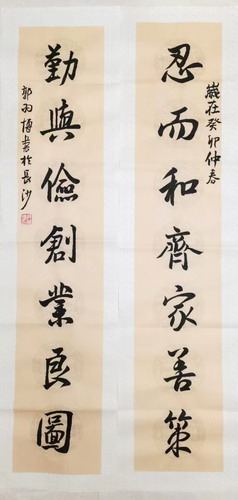 歲在癸卯仲春
忍而和齊家善策
勤與儉創業良圖
郭羽博書於長沙